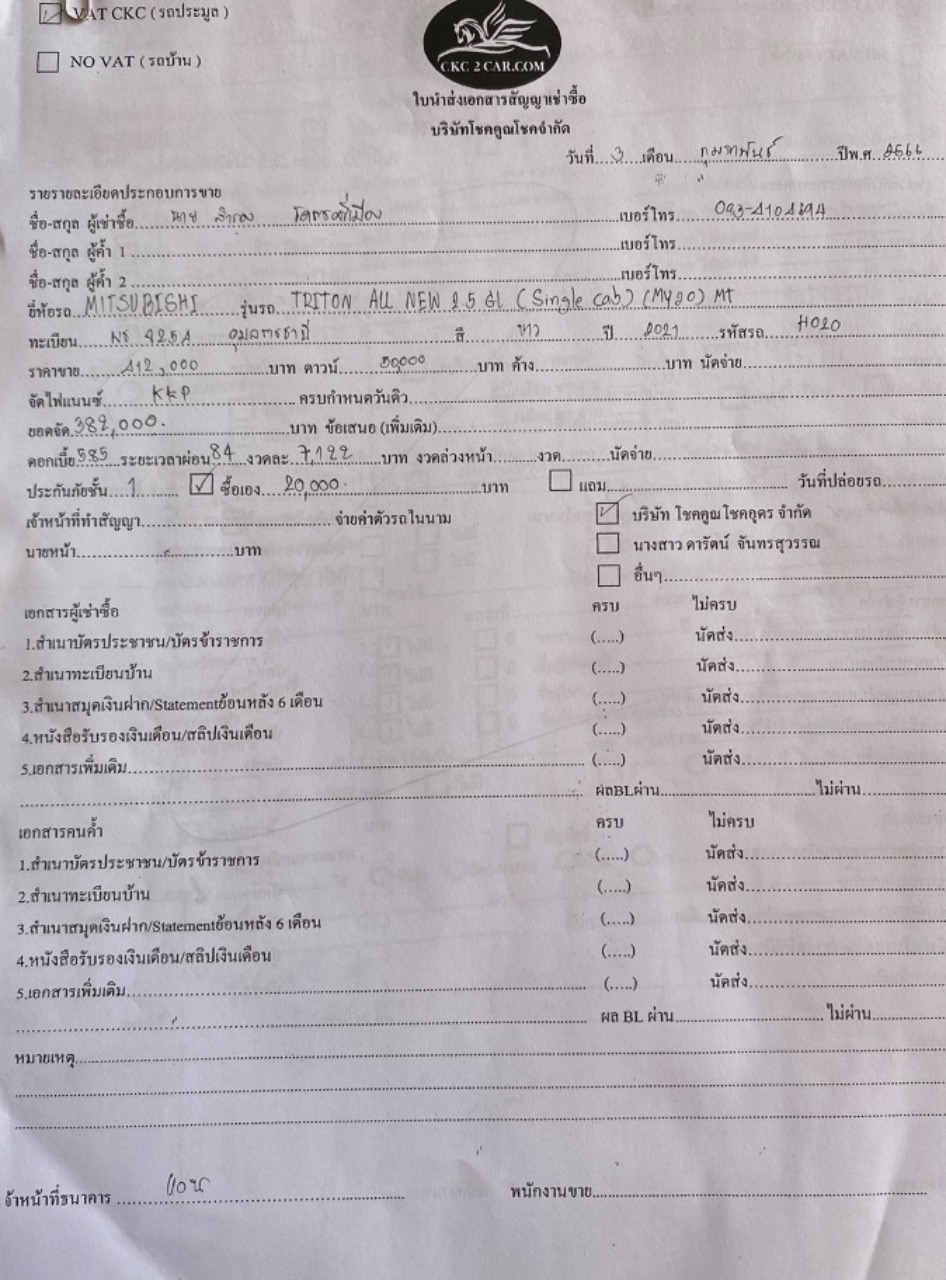 VAT CKC ( รถประมูล )
NO VAT ( รถบ้าน )
CKC 2 CAR.COM
ใบนำส่งเอกสารสัญญาเช่าซื้อ
บริษัทโชคคูณโชคจำกัด
วันที่...3...เดือน....กุมภาพันธ์............ปีพ.ศ. 2566
รายรายละเอียดประกอบการขาย
ชื่อ-สกุล ผู้เช่าซื้อ.......นาย..........เบอร์โทร.......
ชื่อ-สกุล ผู้ค้ำ 1 ..........เบอร์โทร..........
ชื่อ-สกุล ผู้ค้ำ 2 ..........เบอร์โทร..........
ยี่ห้อรถ..MITSUBISHI......รุ่นรถ...TRITON ALL NEW 2.5 GL (Single cab) (MY20) MT
ทะเบียน..........สี.......ขาว.......ปี.....2021.......รหัสรถ.......H020
ราคาขาย.......412,000..........บาท ดาวน์..........บาท ค้าง..........บาท นัดจ่าย..........
จัดไฟแนนซ์........KKP..........ครบกำหนดวันคิว..........
ยอดจัด.382,000...........บาท ข้อเสนอ (เพิ่มเติม)..........
ดอกเบี้ย.585..ระยะเวลาผ่อน.84..งวดละ..7,122......บาท งวดล่วงหน้า.........งวด.........นัดจ่าย..........
ประกันภัยชั้น...1....... ซื้อเอง....20,000...........บาท แถม.......... วันที่ปล่อยรถ..........
เจ้าหน้าที่ทำสัญญา.......... จ่ายค่าตัวรถในนาม บริษัท โชคคูณโชคอุดร จำกัด
นายหน้า..........บาท นางสาว ดารัตน์ จันทรสุวรรณ
อื่นๆ..........
เอกสารผู้เช่าซื้อ ครบ ไม่ครบ
1.สำเนาบัตรประชาชน/บัตรข้าราชการ (.....) นัดส่ง..........
2.สำเนาทะเบียนบ้าน (.....) นัดส่ง..........
3.สำเนาสมุดเงินฝาก/Statementย้อนหลัง 6 เดือน (.....) นัดส่ง..........
4.หนังสือรับรองเงินเดือน/สลิปเงินเดือน (.....) นัดส่ง..........
5.เอกสารเพิ่มเติม.......... (.....) นัดส่ง..........
.......... ผลBLผ่าน..........ไม่ผ่าน..........
เอกสารคนค้ำ ครบ ไม่ครบ
1.สำเนาบัตรประชาชน/บัตรข้าราชการ (.....) นัดส่ง..........
2.สำเนาทะเบียนบ้าน (.....) นัดส่ง..........
3.สำเนาสมุดเงินฝาก/Statementย้อนหลัง 6 เดือน (.....) นัดส่ง..........
4.หนังสือรับรองเงินเดือน/สลิปเงินเดือน (.....) นัดส่ง..........
5.เอกสารเพิ่มเติม.......... (.....) นัดส่ง..........
.......... ผล BL ผ่าน.......... ไม่ผ่าน..........
หมายเหตุ..........
จ้าหน้าที่ธนาคาร .......... พนักงานขาย..........